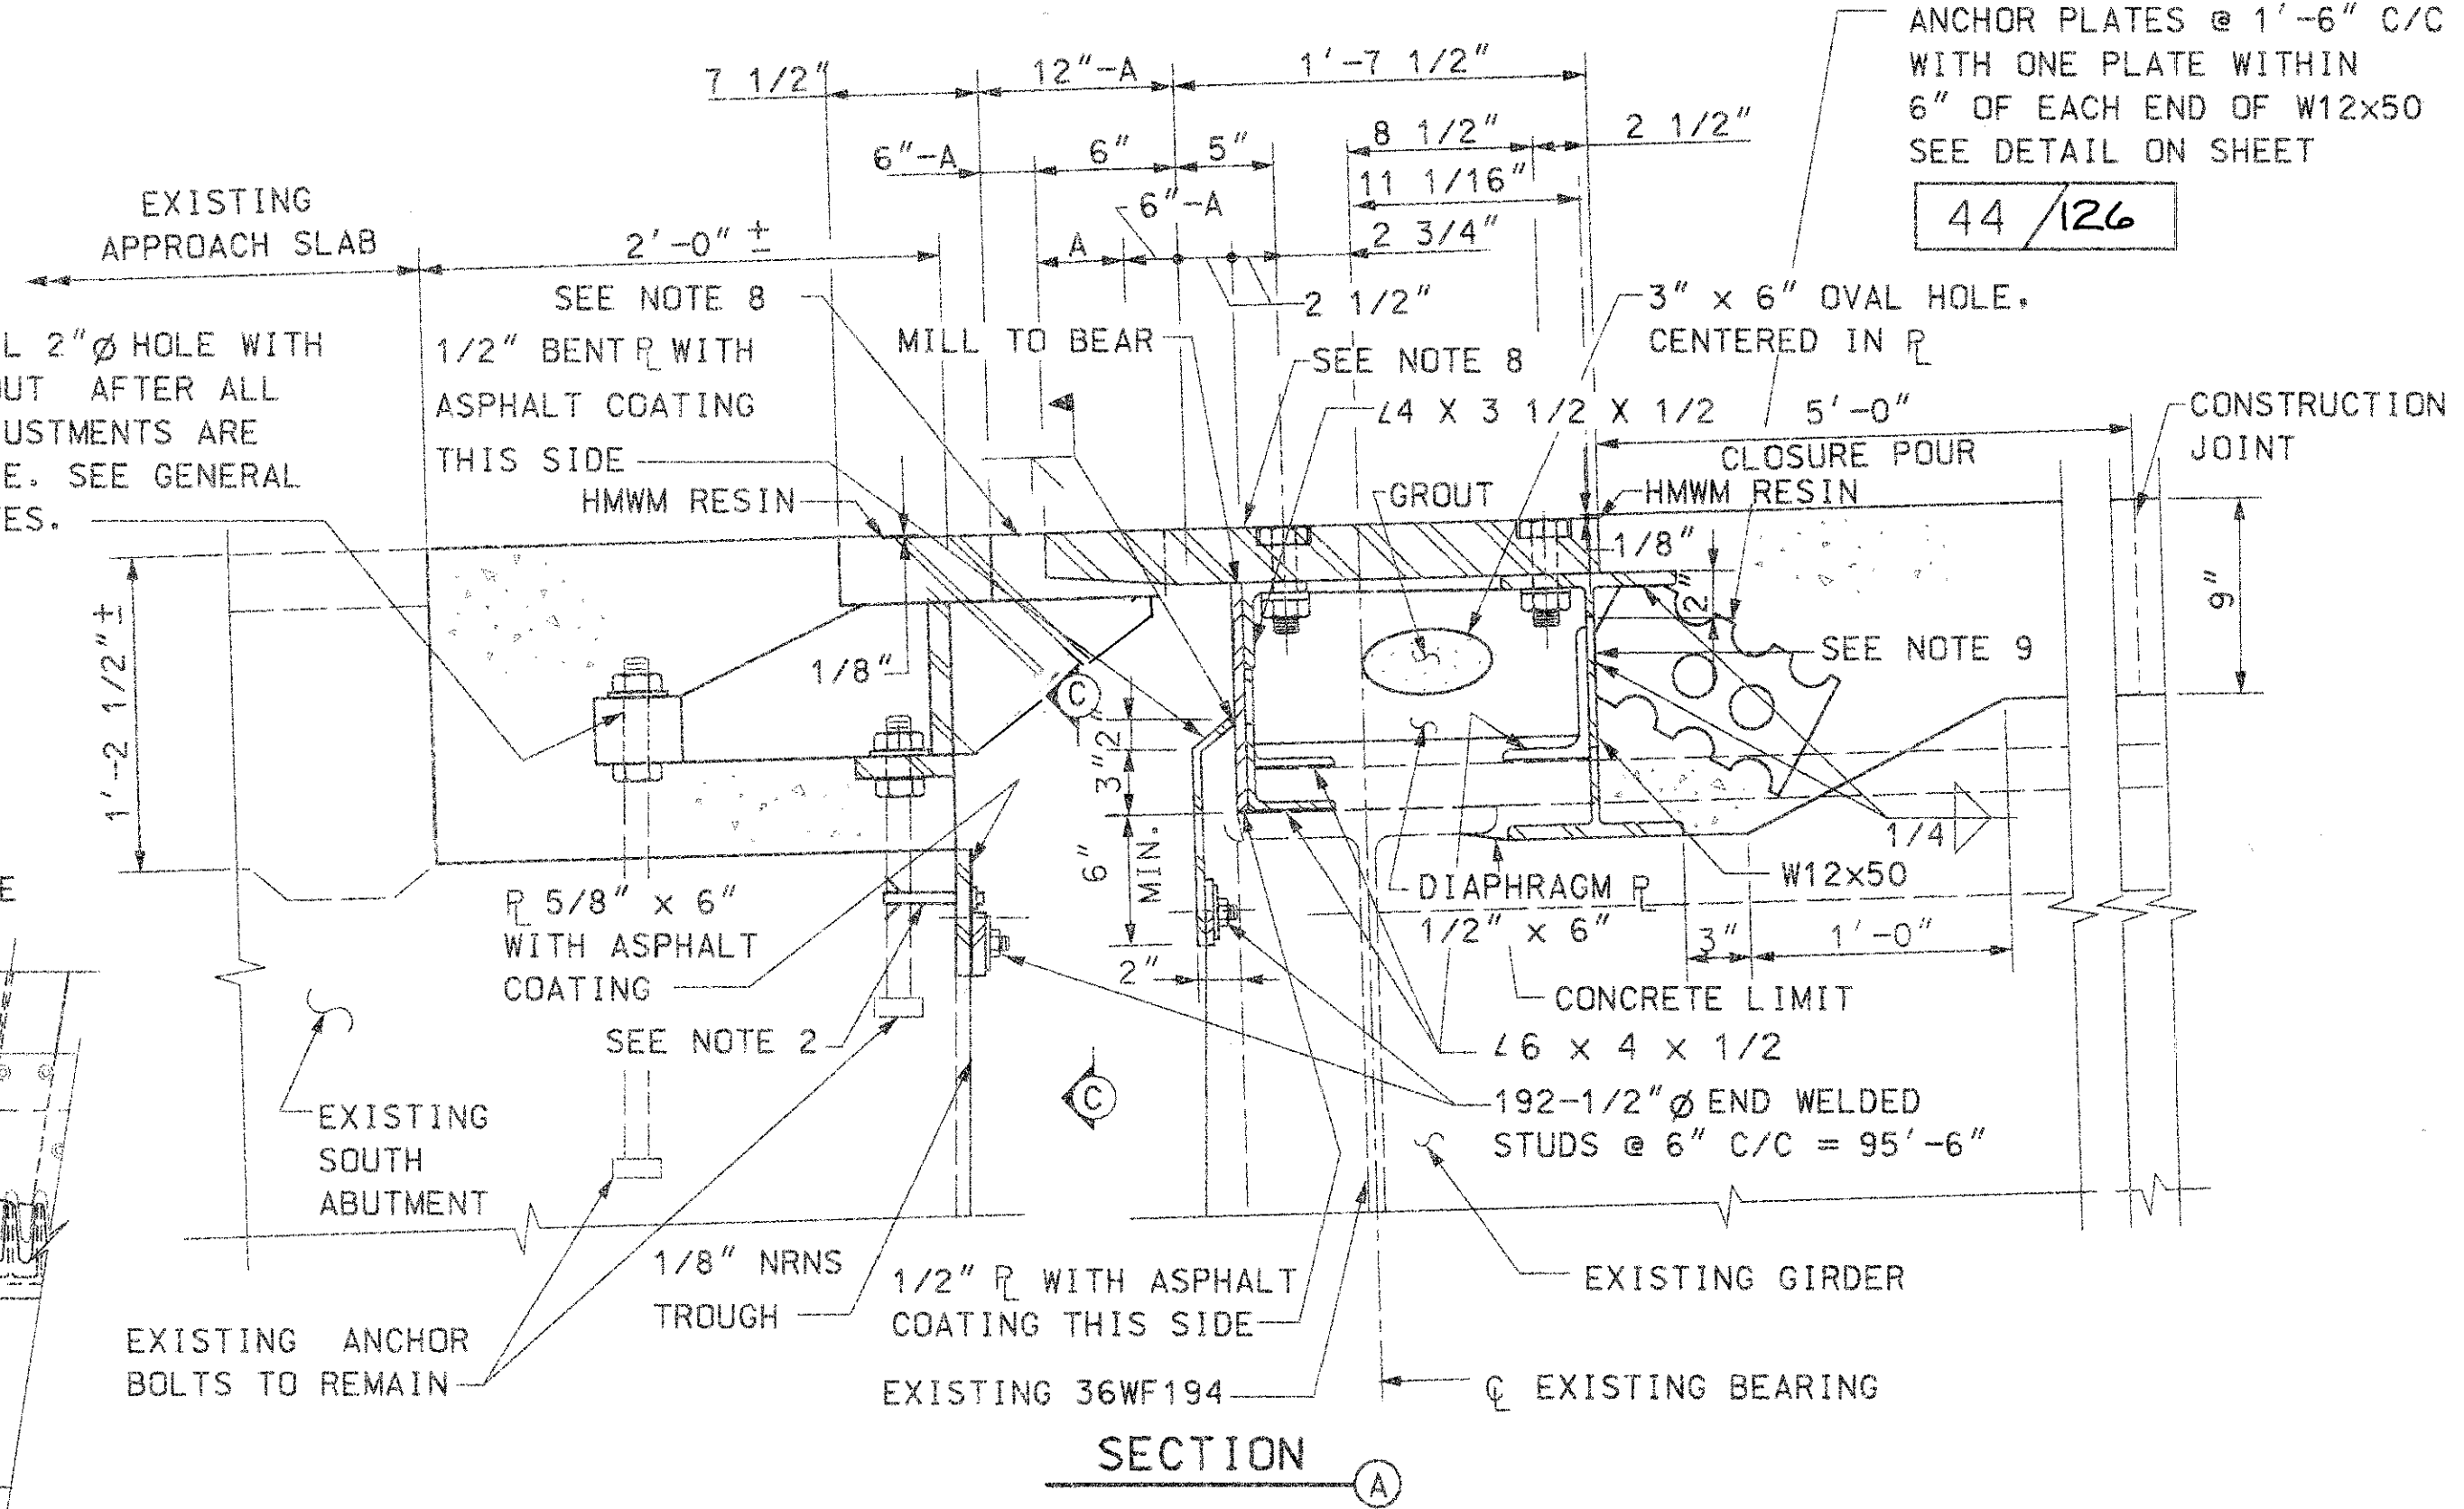 ANCHOR PLATES @ 1'-6" C/C
WITH ONE PLATE WITHIN
6" OF EACH END OF W12x50
SEE DETAIL ON SHEET
44 / 126
7 1/2"
12"-A
1'-7 1/2"
6"-A
6"
5"
8 1/2"
2 1/2"
11 1/16"
6"-A
A
2 3/4"
2 1/2"
EXISTING
APPROACH SLAB
2'-0" ±
SEE NOTE 8
L 2"Ø HOLE WITH
OUT AFTER ALL
USTMENTS ARE
E. SEE GENERAL
ES.
1/2" BENT PL WITH
ASPHALT COATING
THIS SIDE
HMWM RESIN
MILL TO BEAR
SEE NOTE 8
3" x 6" OVAL HOLE.
CENTERED IN PL
∠4 X 3 1/2 X 1/2
5'-0"
CLOSURE POUR
CONSTRUCTION
JOINT
GROUT
HMWM RESIN
1/8"
2"
9"
SEE NOTE 9
1'-2 1/2" ±
1/8"
C
2"
3"
6"
MIN.
2"
1/4
W12x50
DIAPHRAGM PL
1/2" x 6"
3"
1'-0"
CONCRETE LIMIT
∠6 x 4 x 1/2
192-1/2"Ø END WELDED
STUDS @ 6" C/C = 95'-6"
E
PL 5/8" x 6"
WITH ASPHALT
COATING
SEE NOTE 2
C
EXISTING
SOUTH
ABUTMENT
1/8" NRNS
TROUGH
1/2" PL WITH ASPHALT
COATING THIS SIDE
EXISTING GIRDER
EXISTING ANCHOR
BOLTS TO REMAIN
EXISTING 36WF194
CL EXISTING BEARING
SECTION A